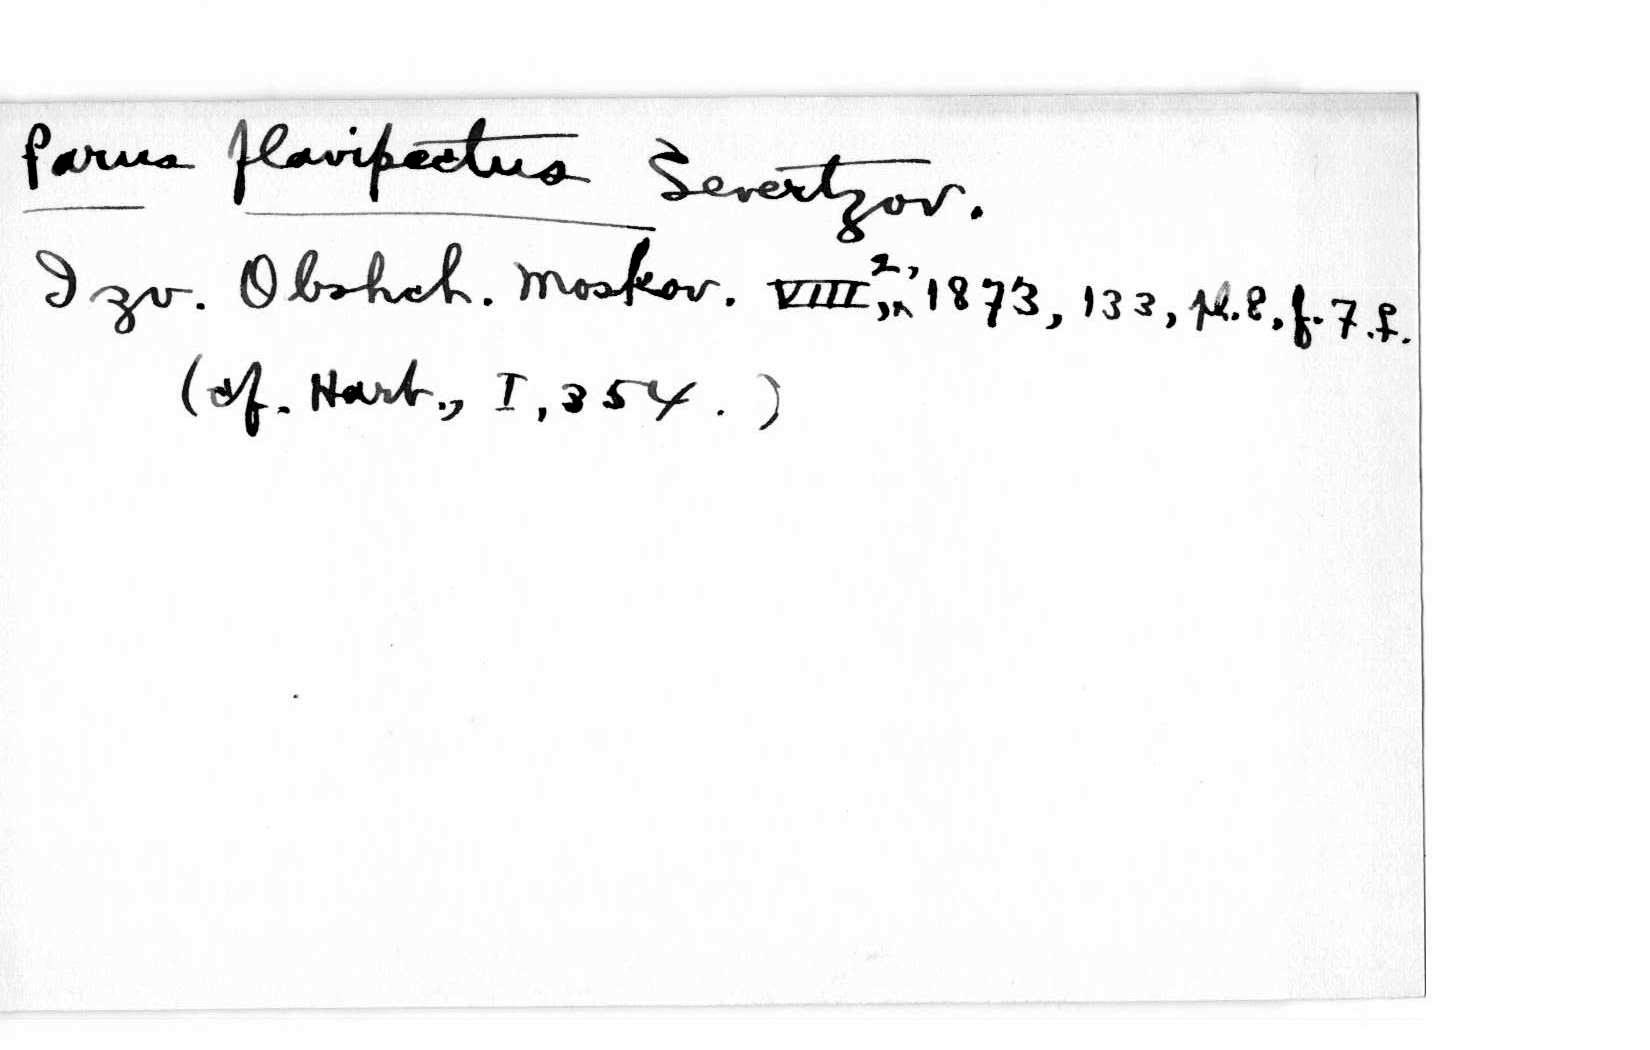 Parus flavipectus Severtzov.
Izv. Obshch. Moskov. VIII, 2, 1873, 133, pl. 8, f. 7.
(cf. Hart., I, 354.)